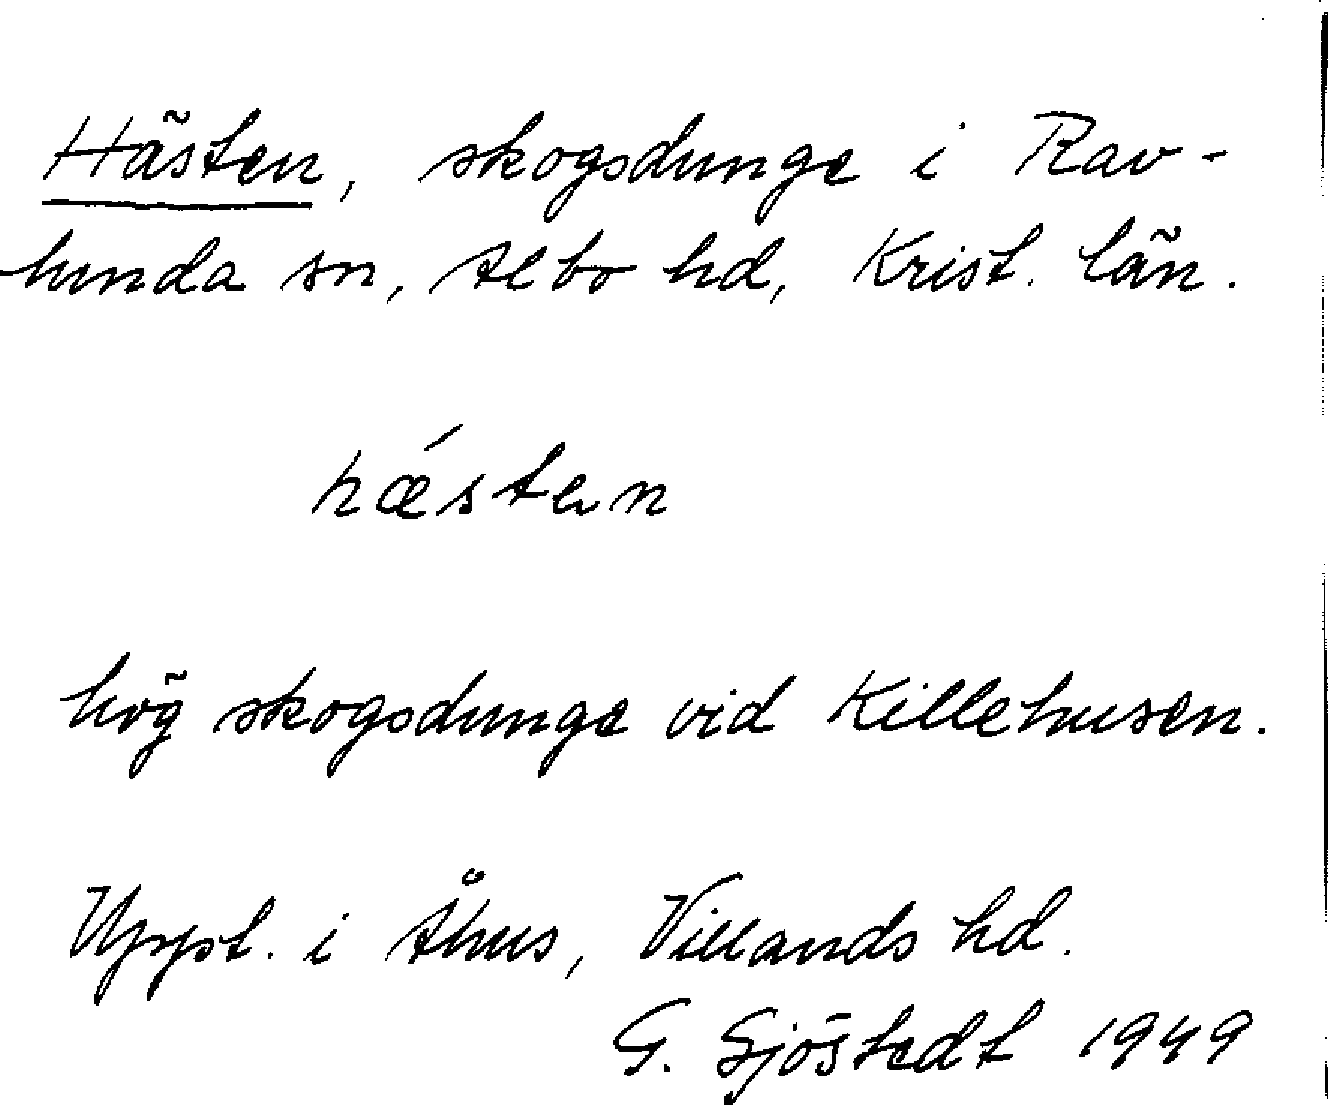 Hästen, skogsdunge i Rav-
lunda sn, Albo hd, Krist. län.
hǽsten
hög skogsdunge vid Killehusen.
Uppt. i Åhus, Villands hd.
G. Sjöstedt 1949